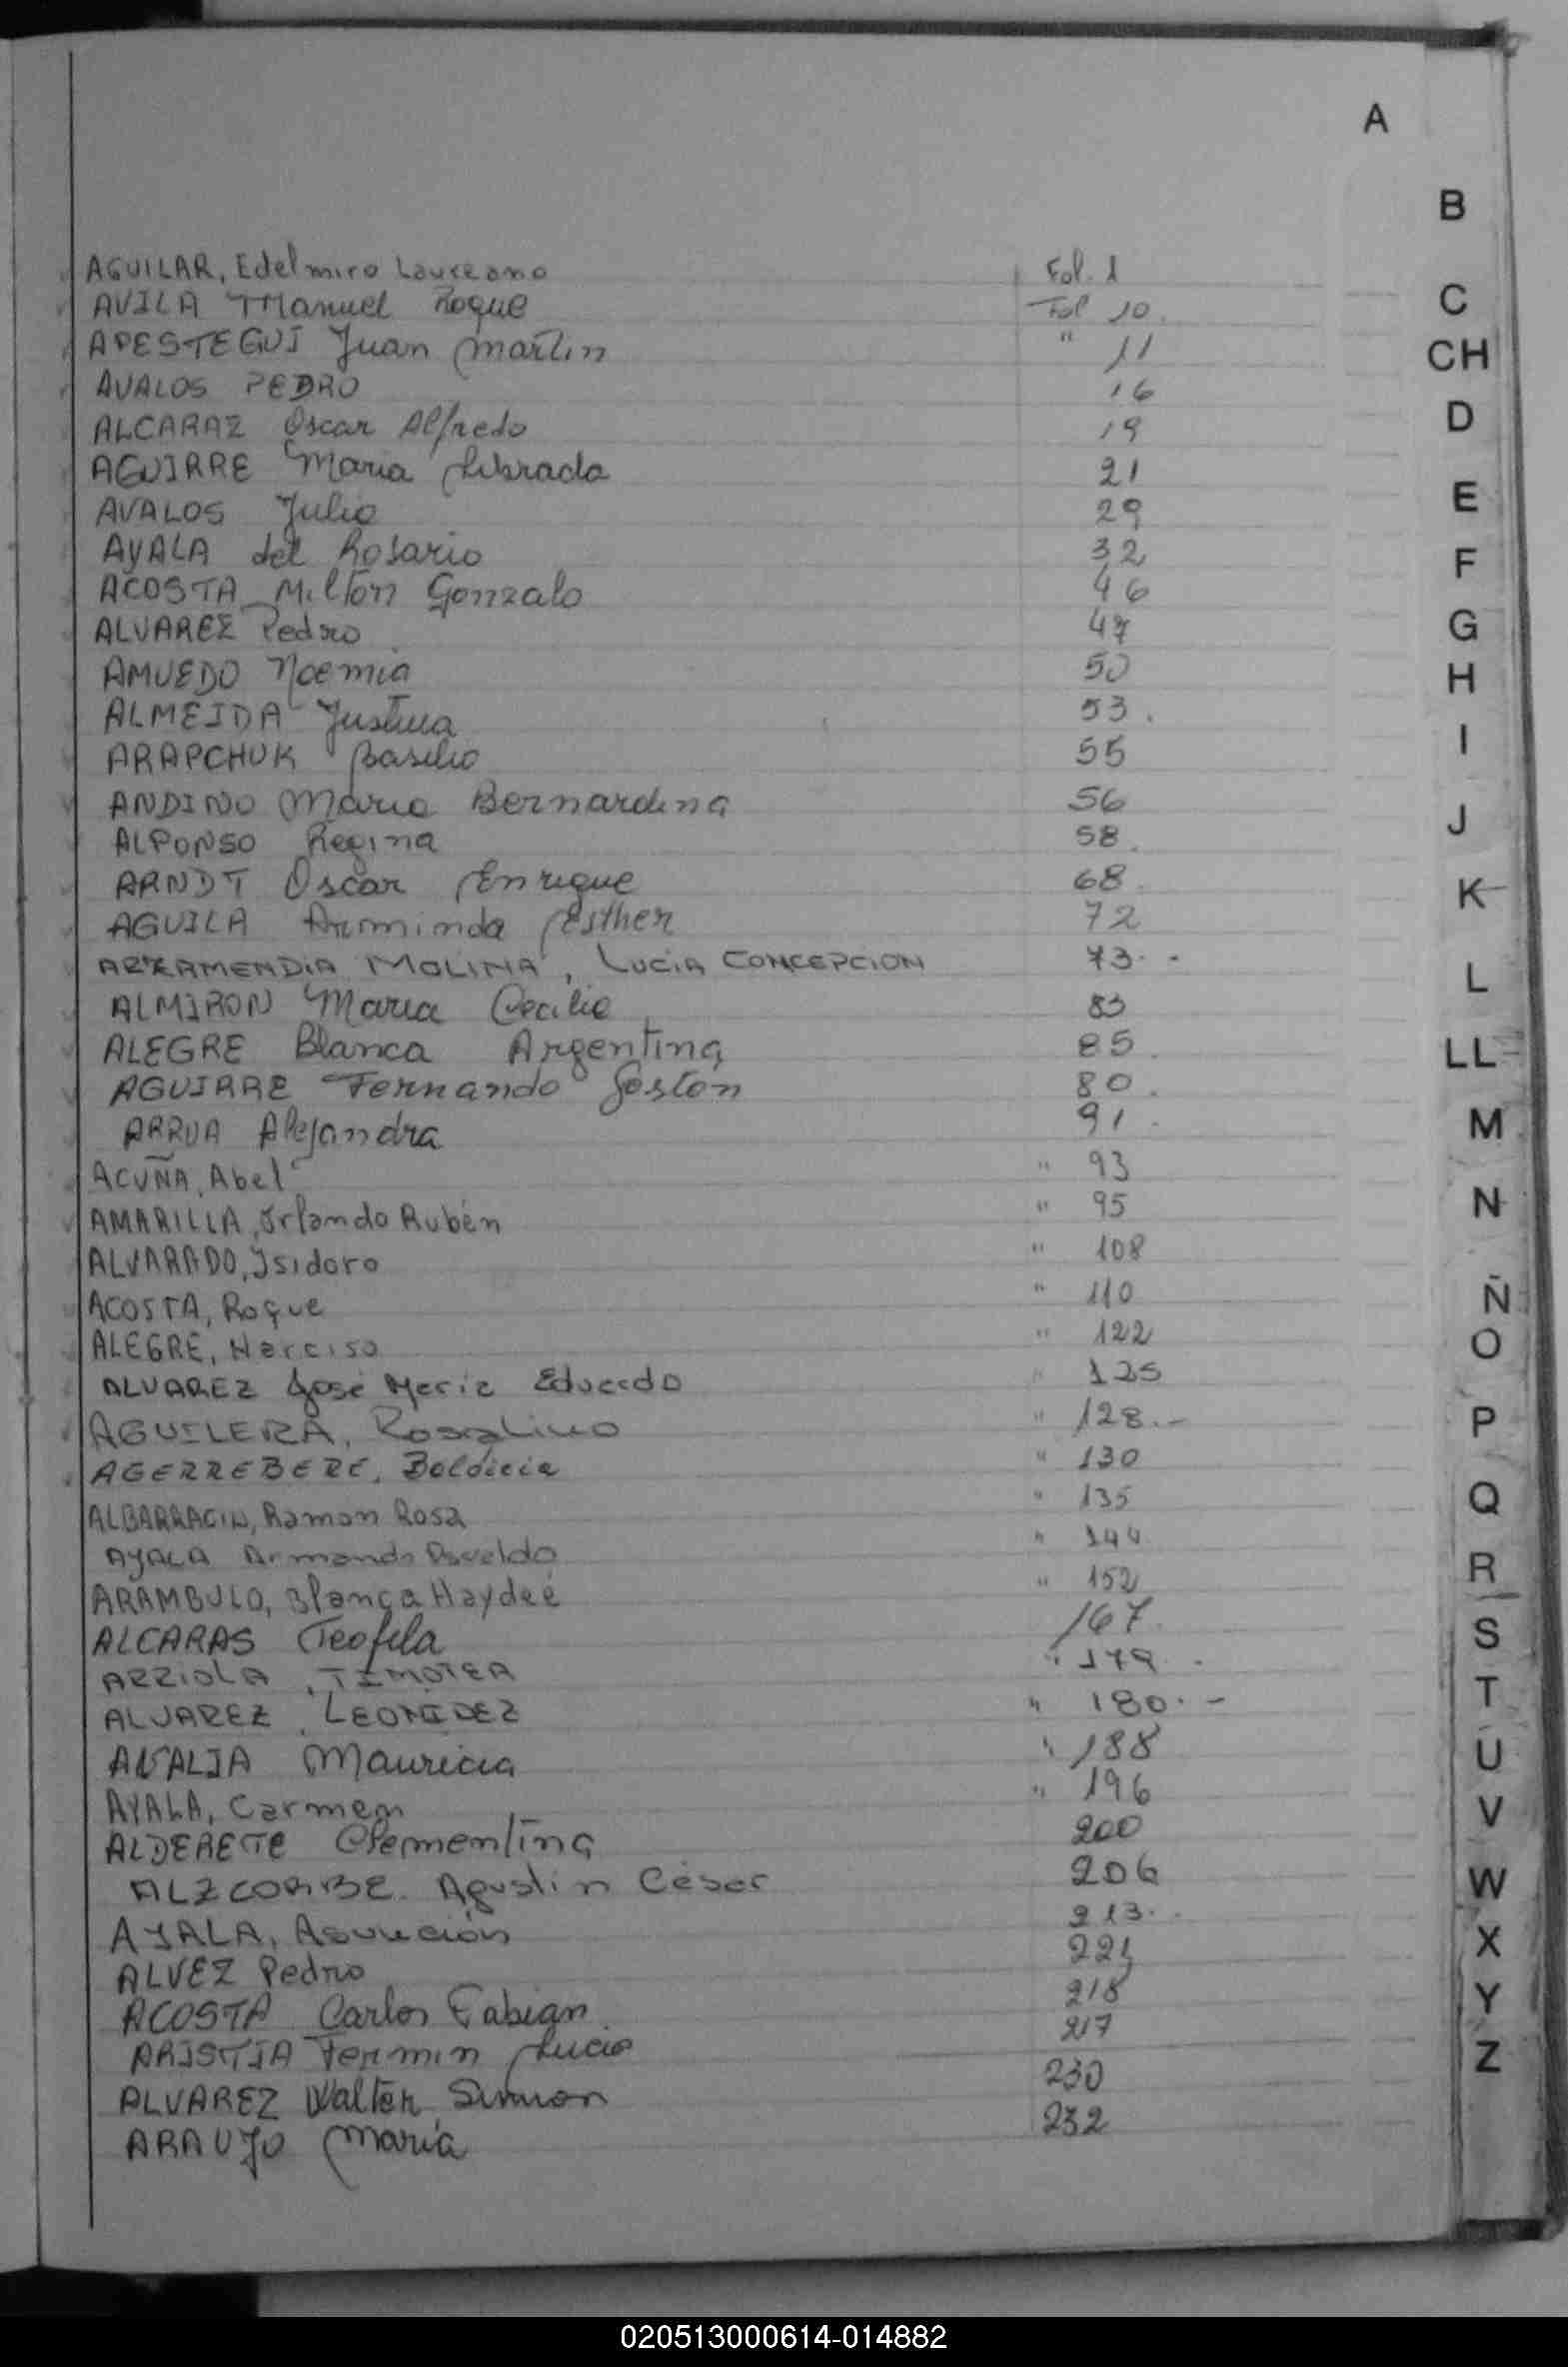 A
B
C
CH
D
E
F
G
H
I
J
K
L
LL
M
N
Ñ
O
P
Q
R
S
T
U
V
W
X
Y
Z
AGUILAR, Edelmiro Laureano Fol. 1
AVILA Manuel Roque Fol 10.
APESTEGUI Juan Martin " 11
AVALOS PEDRO 16
ALCARAZ Oscar Alfredo 19
AGUIRRE Maria Librada 21
AVALOS Julio 29
AYALA del Rosario 32
ACOSTA Milton Gonzalo 46
ALVAREZ Pedro 47
AMUEDO Noemia 50
ALMEIDA Justina 53.
ARAPCHUK Basilio 55
ANDINO Maria Bernardina 56
ALFONSO Regina 58.
ARNDT Oscar Enrique 68.
AGUILA Arminda Esther 72
ARZAMENDIA MOLINA, LUCIA CONCEPCION 73.-
ALMIRON Maria Cecilia 83
ALEGRE Blanca Argentina 85.
AGUIRRE Fernando Gastón 80.
ARRUA Alejandra 91.
ACUÑA, Abel " 93
AMARILLA, Orlando Rubén " 95
ALVARADO, Isidoro " 108
ACOSTA, Roque " 110
ALEGRE, Narciso " 122
ALVAREZ José Maria Eduardo " 125
AGUILERA, Rosalino " 128.-
AGERREBERE, " 130
ALBARRACIN, Ramon Rosa " 135
AYALA Armando Osvaldo " 144
ARAMBULO, Blanca Haydeé " 152
ALCARAS Teofila 167.
ARRIOLA, TIMOTEA " 179.-
ALVAREZ, LEONIDEZ " 180.-
Mauricia " 188
AYALA, Carmen " 196
ALDERETE Clementina 200
Agustin César 206
AYALA, Asunción 213.-
ALVEZ Pedro 221
ACOSTA Carlos Fabian. 218
ARISTIA Fermin Lucio 217
ALVAREZ Walter Simion 230
ARAUJO Maria 232
020513000614-014882